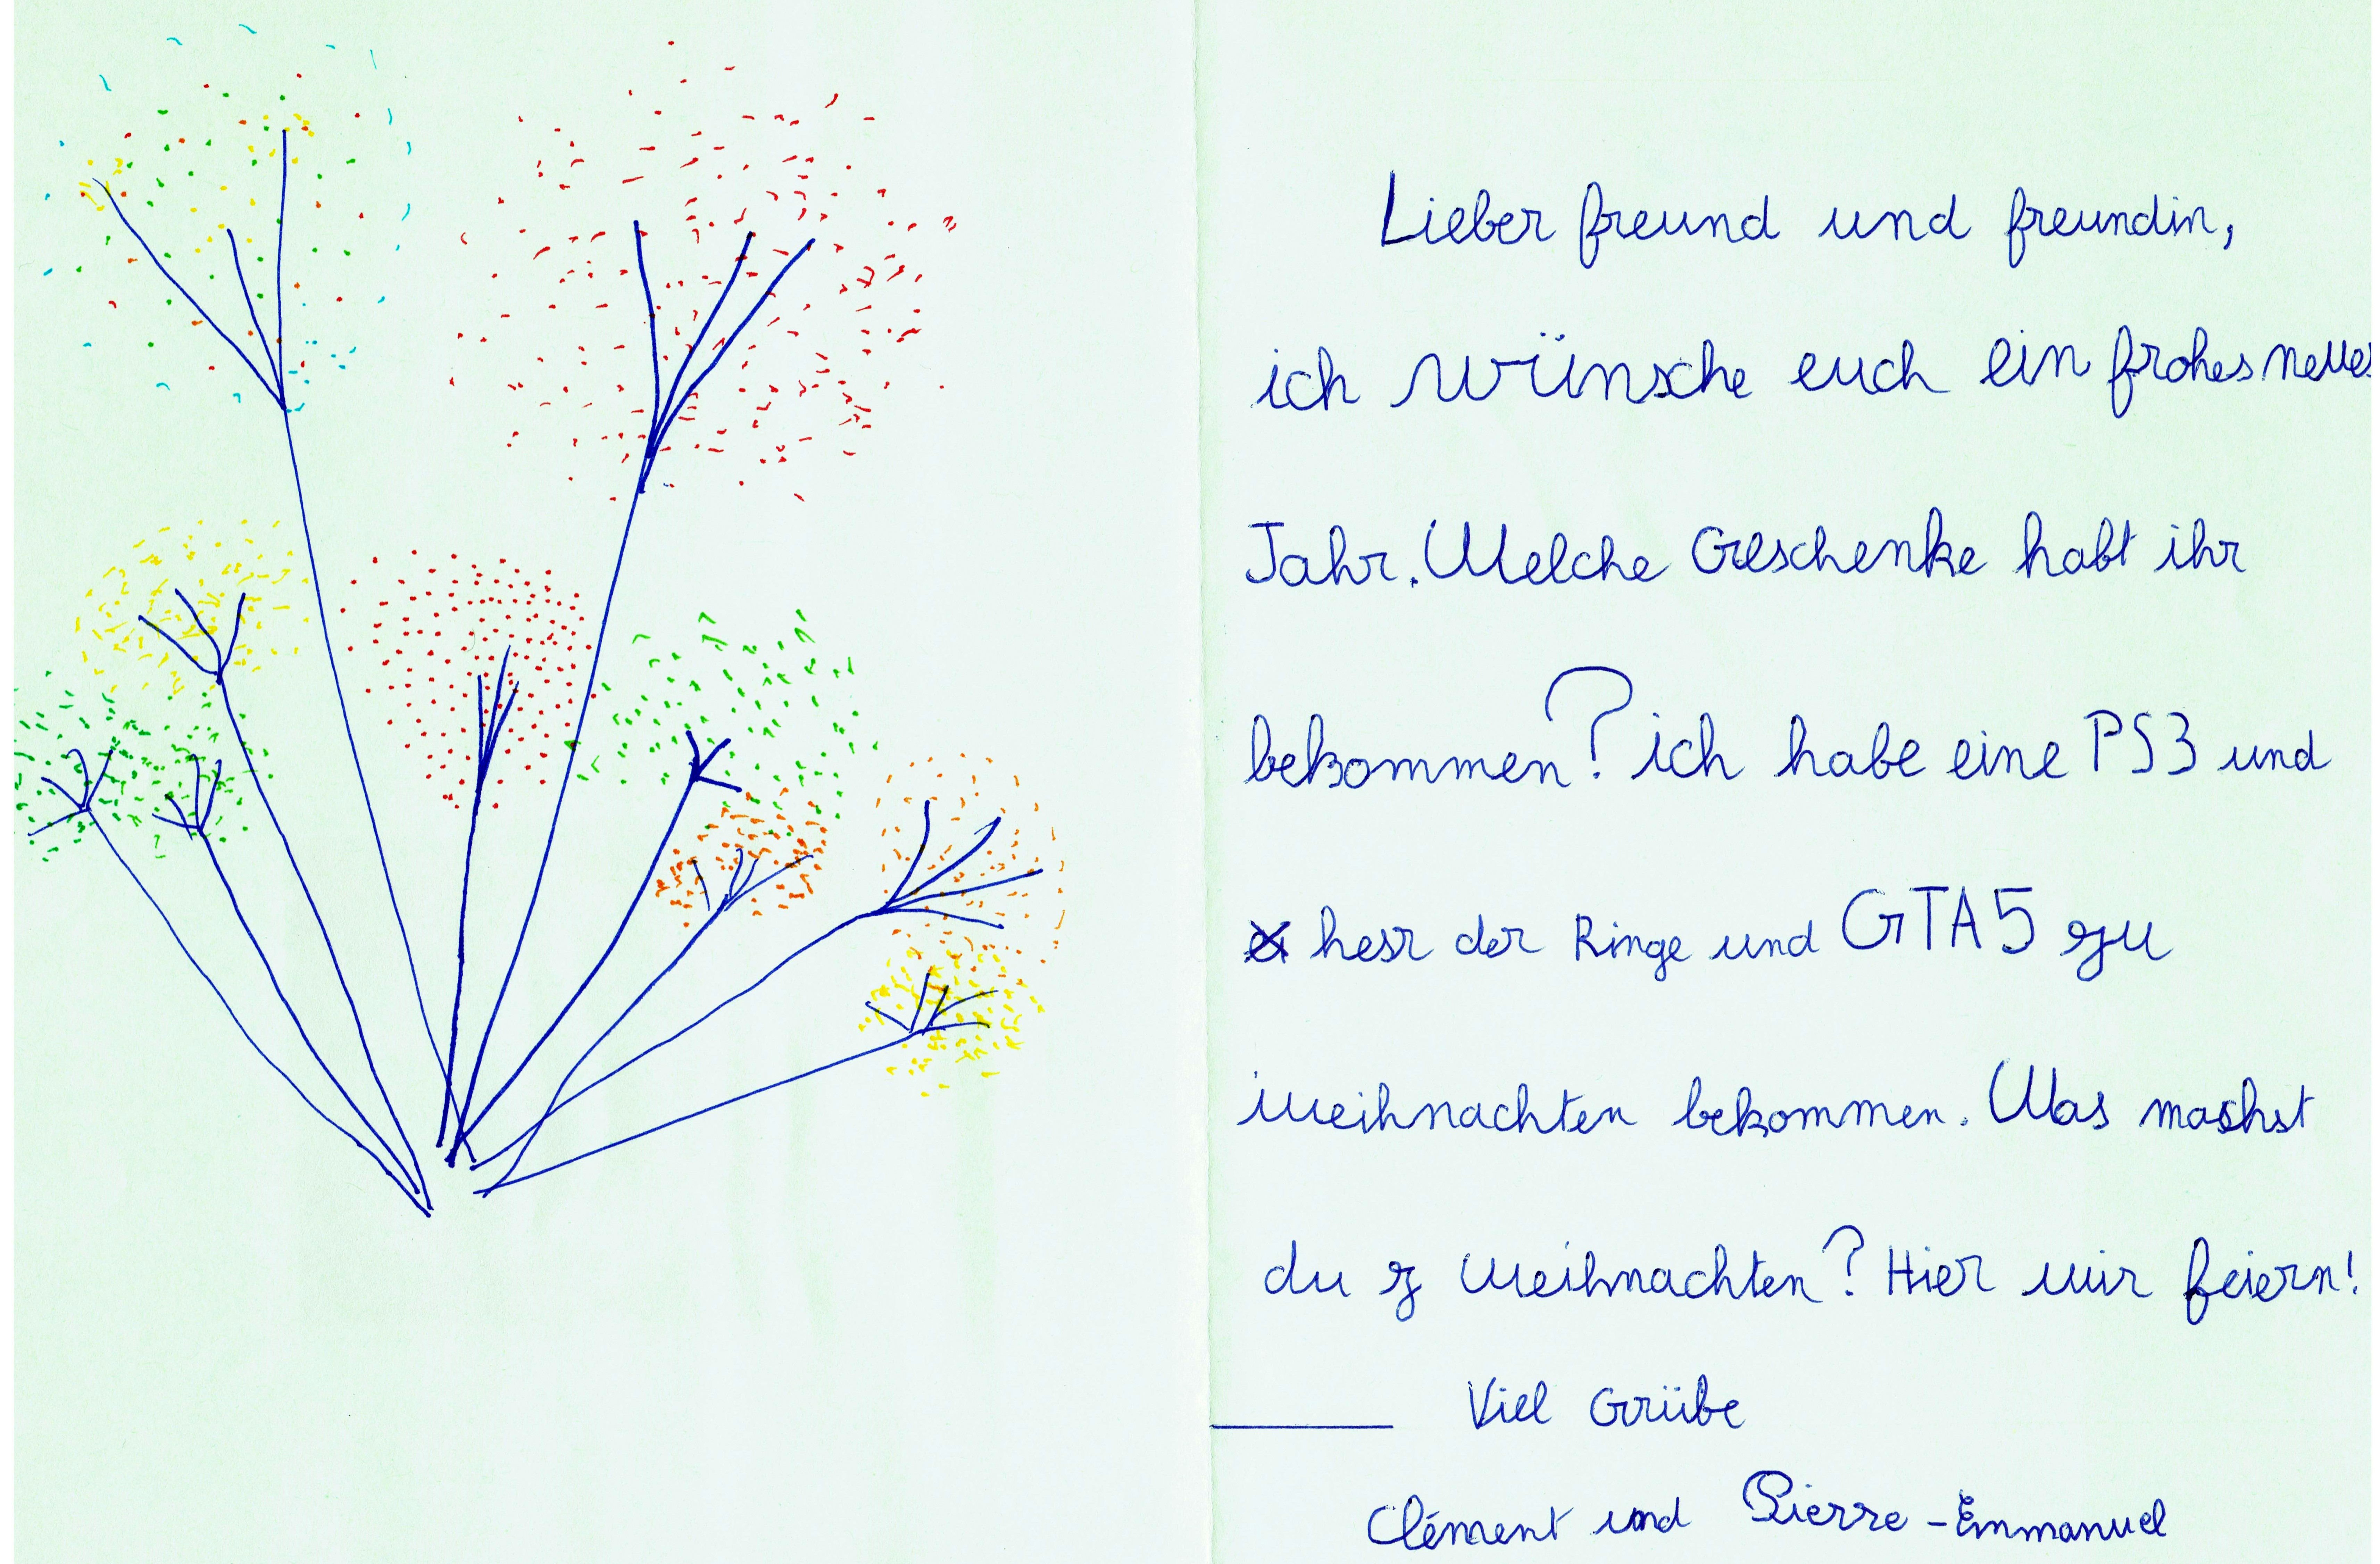 Lieber freund und freundin,
ich wünsche euch ein frohes neues
Jahr. Welche Geschenke habt ihr
bekommen? ich habe eine PS3 und
herr der Ringe und GTA5 zu
weihnachten bekommen. Was machst
du z weihnachten? Hier wir feiern!
Viel Grüße
Clément und Pierre-Emmanuel